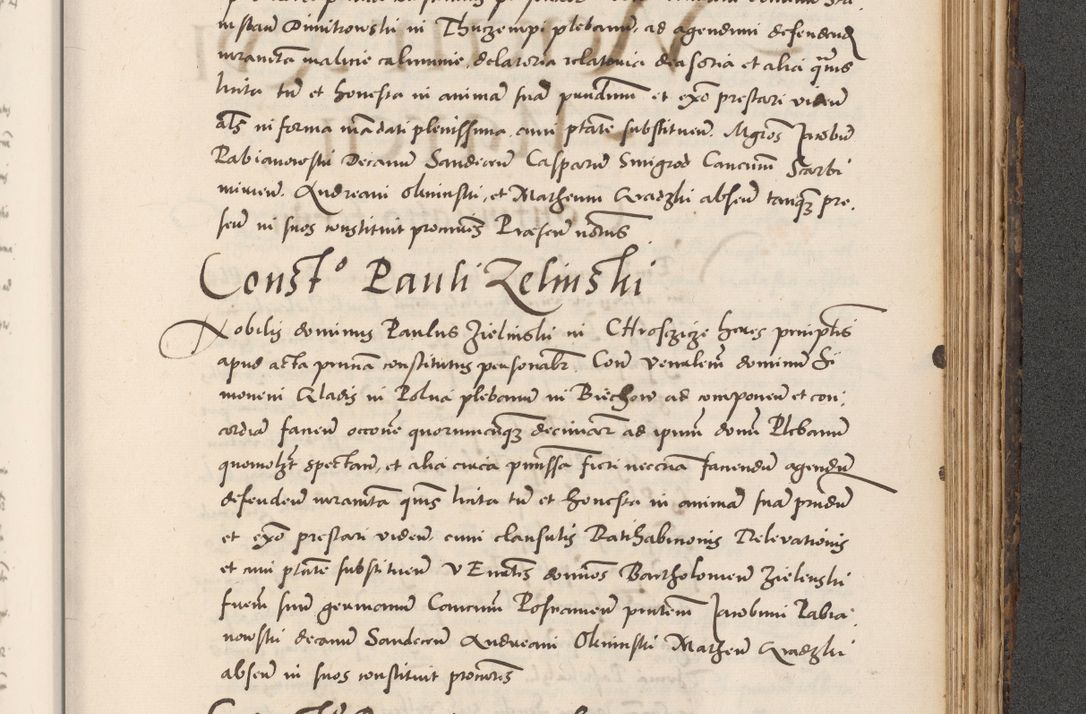 nistam Dimitrowski in Thuzempi plebanum, ad agendum defendend
iuramta malicie calumnie, delatoria relatoria dißoria et alia quis
licita tum et honesta in animam suam prndum et expo prestari videm
als in forma mandati plenissima, cum ptate substituen. Mgros Jacobum
Rabianowski Decanum Sandecem Casparum Smigrod Cancum Scarbi
mirien. Andream Olsinski, et Matheum Gradzki absen tanqz pre,
sen in suos constituit procures Præsen notus
Const° Pauli Zelinski
Nobilis dominus Paulus Zielinski in CHroszeze heres principlis
apud acta prima constitutus personalr. Con Venalem dominum Si
monem Gladis in Polna plebanum in Biechow ad componen et con,
cordiam facien occone quorumcunqz decimar ad ipsum domi Plebanum
quomolzt spectan, et alia circa pmissa fieri neccria faciendum agendum
defenden iuramta quis licita tum et honesta in animam suam prndum
et expo prestari videm cum clausulis Ratihabicionis Relevationis
et cum ptate substituen VEnlis dominos Bartholomeum Zielenski
frem suum germanum Canicum Posnanien pntem Jacobum Rabia,
nowski decanum Sandecem Andream Olsinski Matheum Gradzki
absen in suos constituit procures